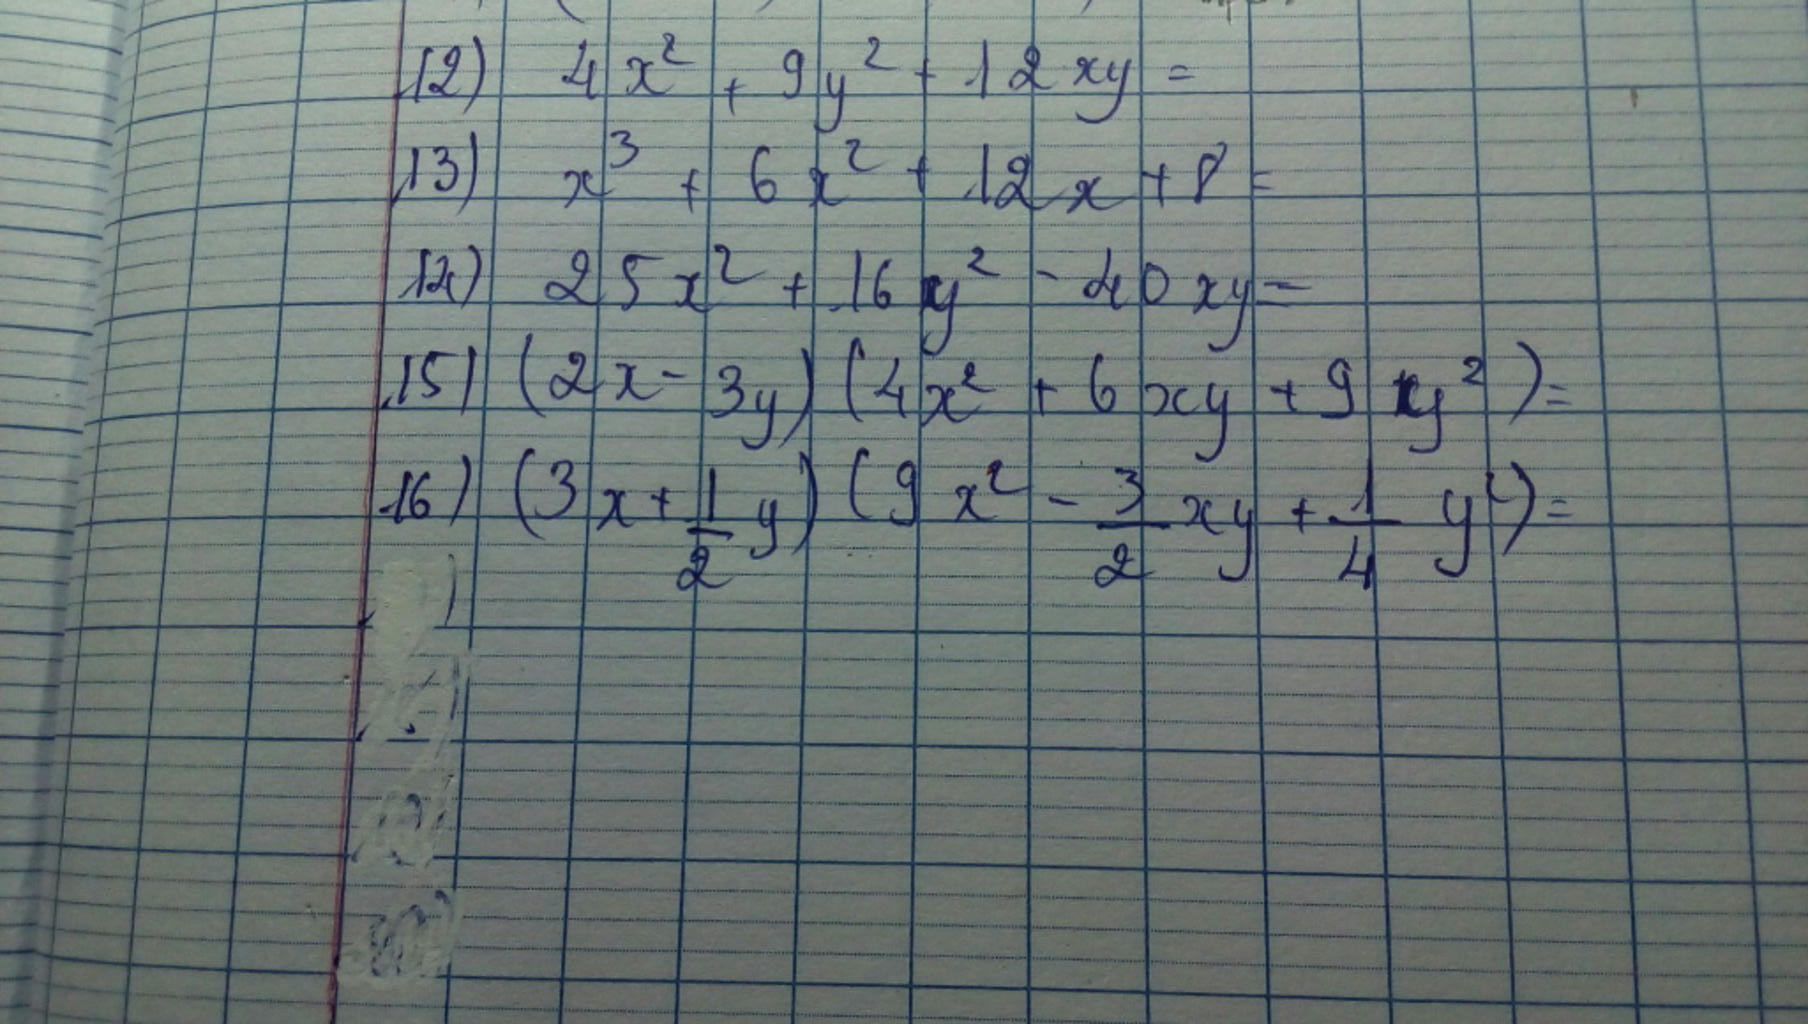 12) 4x² + 9y² + 12xy =
13) x³ + 6x² + 12x + 8 =
14) 25x² + 16y² - 40xy =
15) (2x - 3y) (4x² + 6xy + 9y²) =
16) (3x + 1/2 y) (9x² - 3/2 xy + 1/4 y²) =